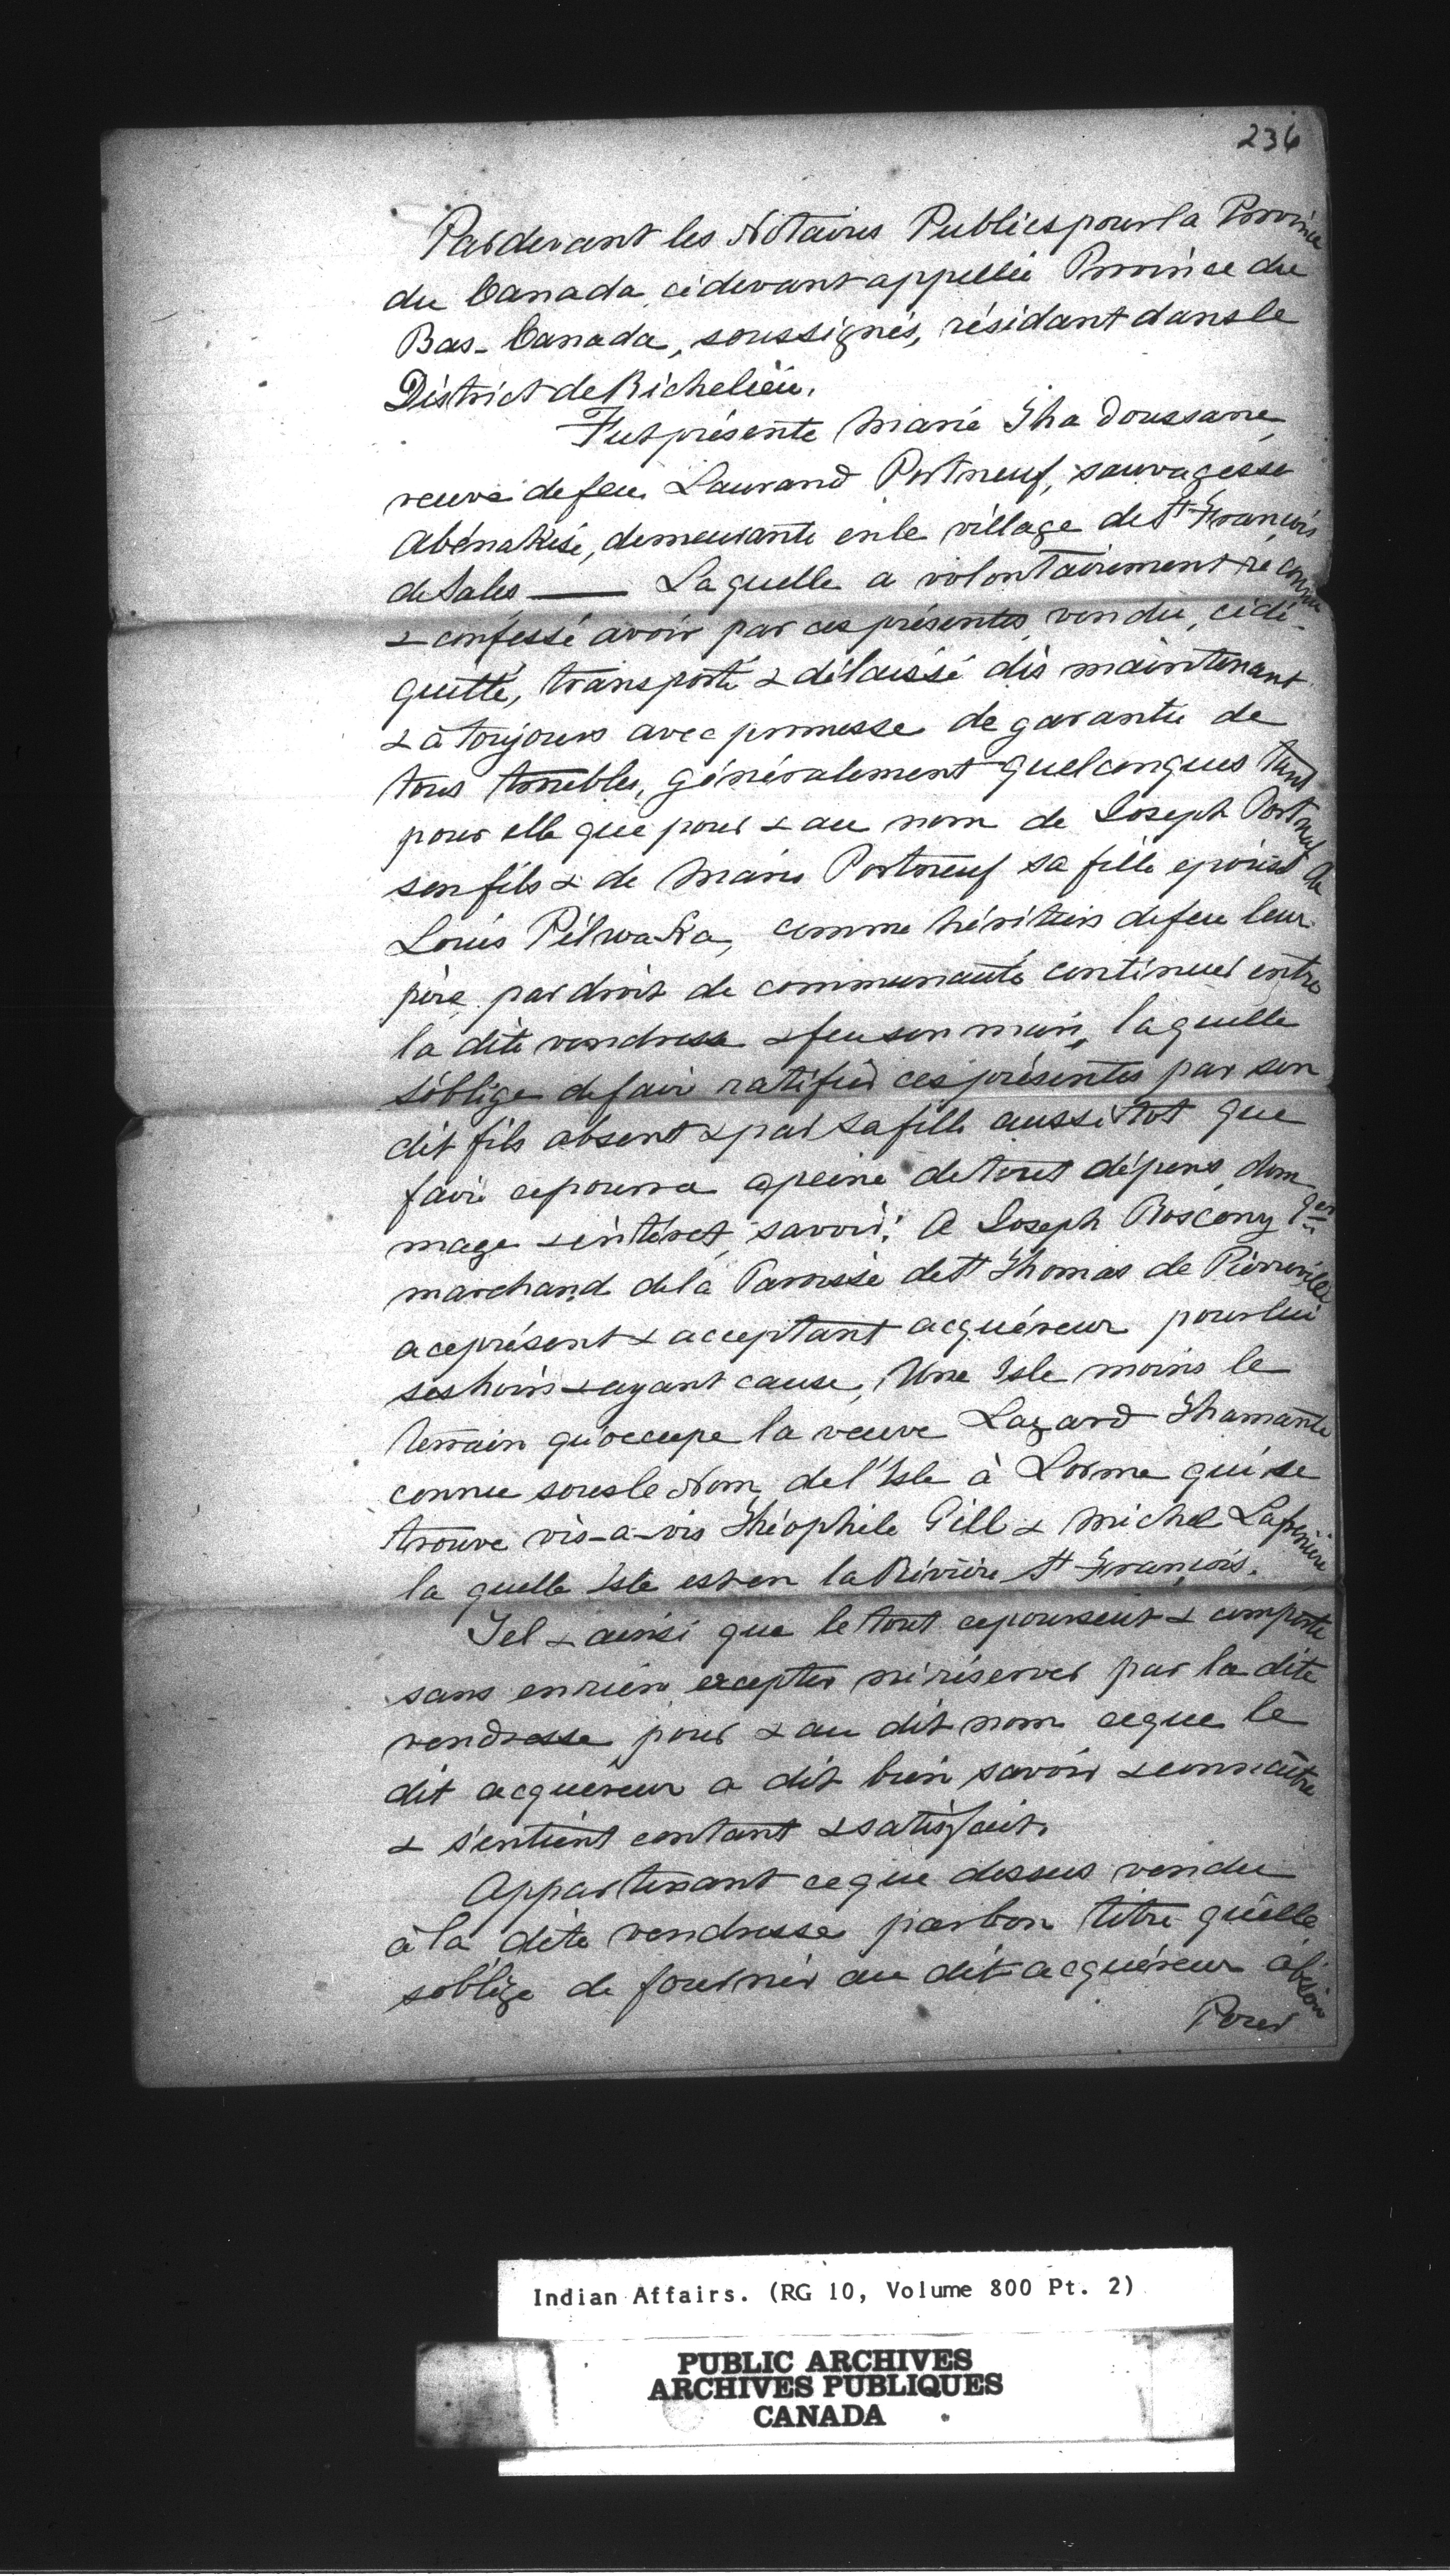 236
Pardevant les Notaires Publics pour la Province
du Canada, cidevant appellée Province du
Bas-Canada, soussignés, résidant dans le
District de Richelieu.
Fut présente Marie Tha doussane,
veuve de feu Laurand Portneuf, sauvagesse
Abénakise, demeurante en le village de St François
de Sales —— Laquelle a volontairement reconnu
& confessé avoir par ces présentes vendu, cédé-
quitté, transporté & délaissé dès maintenant
& à toujours avec promesse de garantie de
tous troubles, généralement quelconques tant
pour elle que pour & au nom de Joseph Portneuf
son fils & de Marie Portneuf sa fille epouse de
Louis Pélwaka, comme héritiers de feu leur
père par droit de communauté continuer entre
la dite vendresse & feu son mari, laquelle
s'oblige de faire ratifier ces présentes par son
dit fils absent & par sa fille aussitôt que
faire ce pourra a peine de tout dépens, dom-
mage & intéret, savoir: A Joseph Boscony ger
marchand de la Paroisse de St Thomas de Pierreville
a ce présent & acceptant acquéreur pour lui
ses hoirs & ayant cause, Une Isle moins le
terrain qu'occupe la veuve Lazard Thamante
connue sous le Nom de l'Isle à Lorme qui se
trouve vis-a-vis Théophile Gill & Michel Laperière,
la quelle Isle est en la Rivière St François.
Tel & ainsi que le tout ce poursuit & comporte
sans en rien excepter ni réserver par la dite
vendresse pour & au dit nom ce que le
dit acquéreur a dit bien savoir & connaître
& s'entient contant & satisfait.
Appartenant ce que dessus vendu
à la dite vendresse par bon titre qu'elle
s'oblige de fournir au dit acquéreur à besoin
Pour
Indian Affairs. (RG 10, Volume 800 Pt. 2)
PUBLIC ARCHIVES
ARCHIVES PUBLIQUES
CANADA